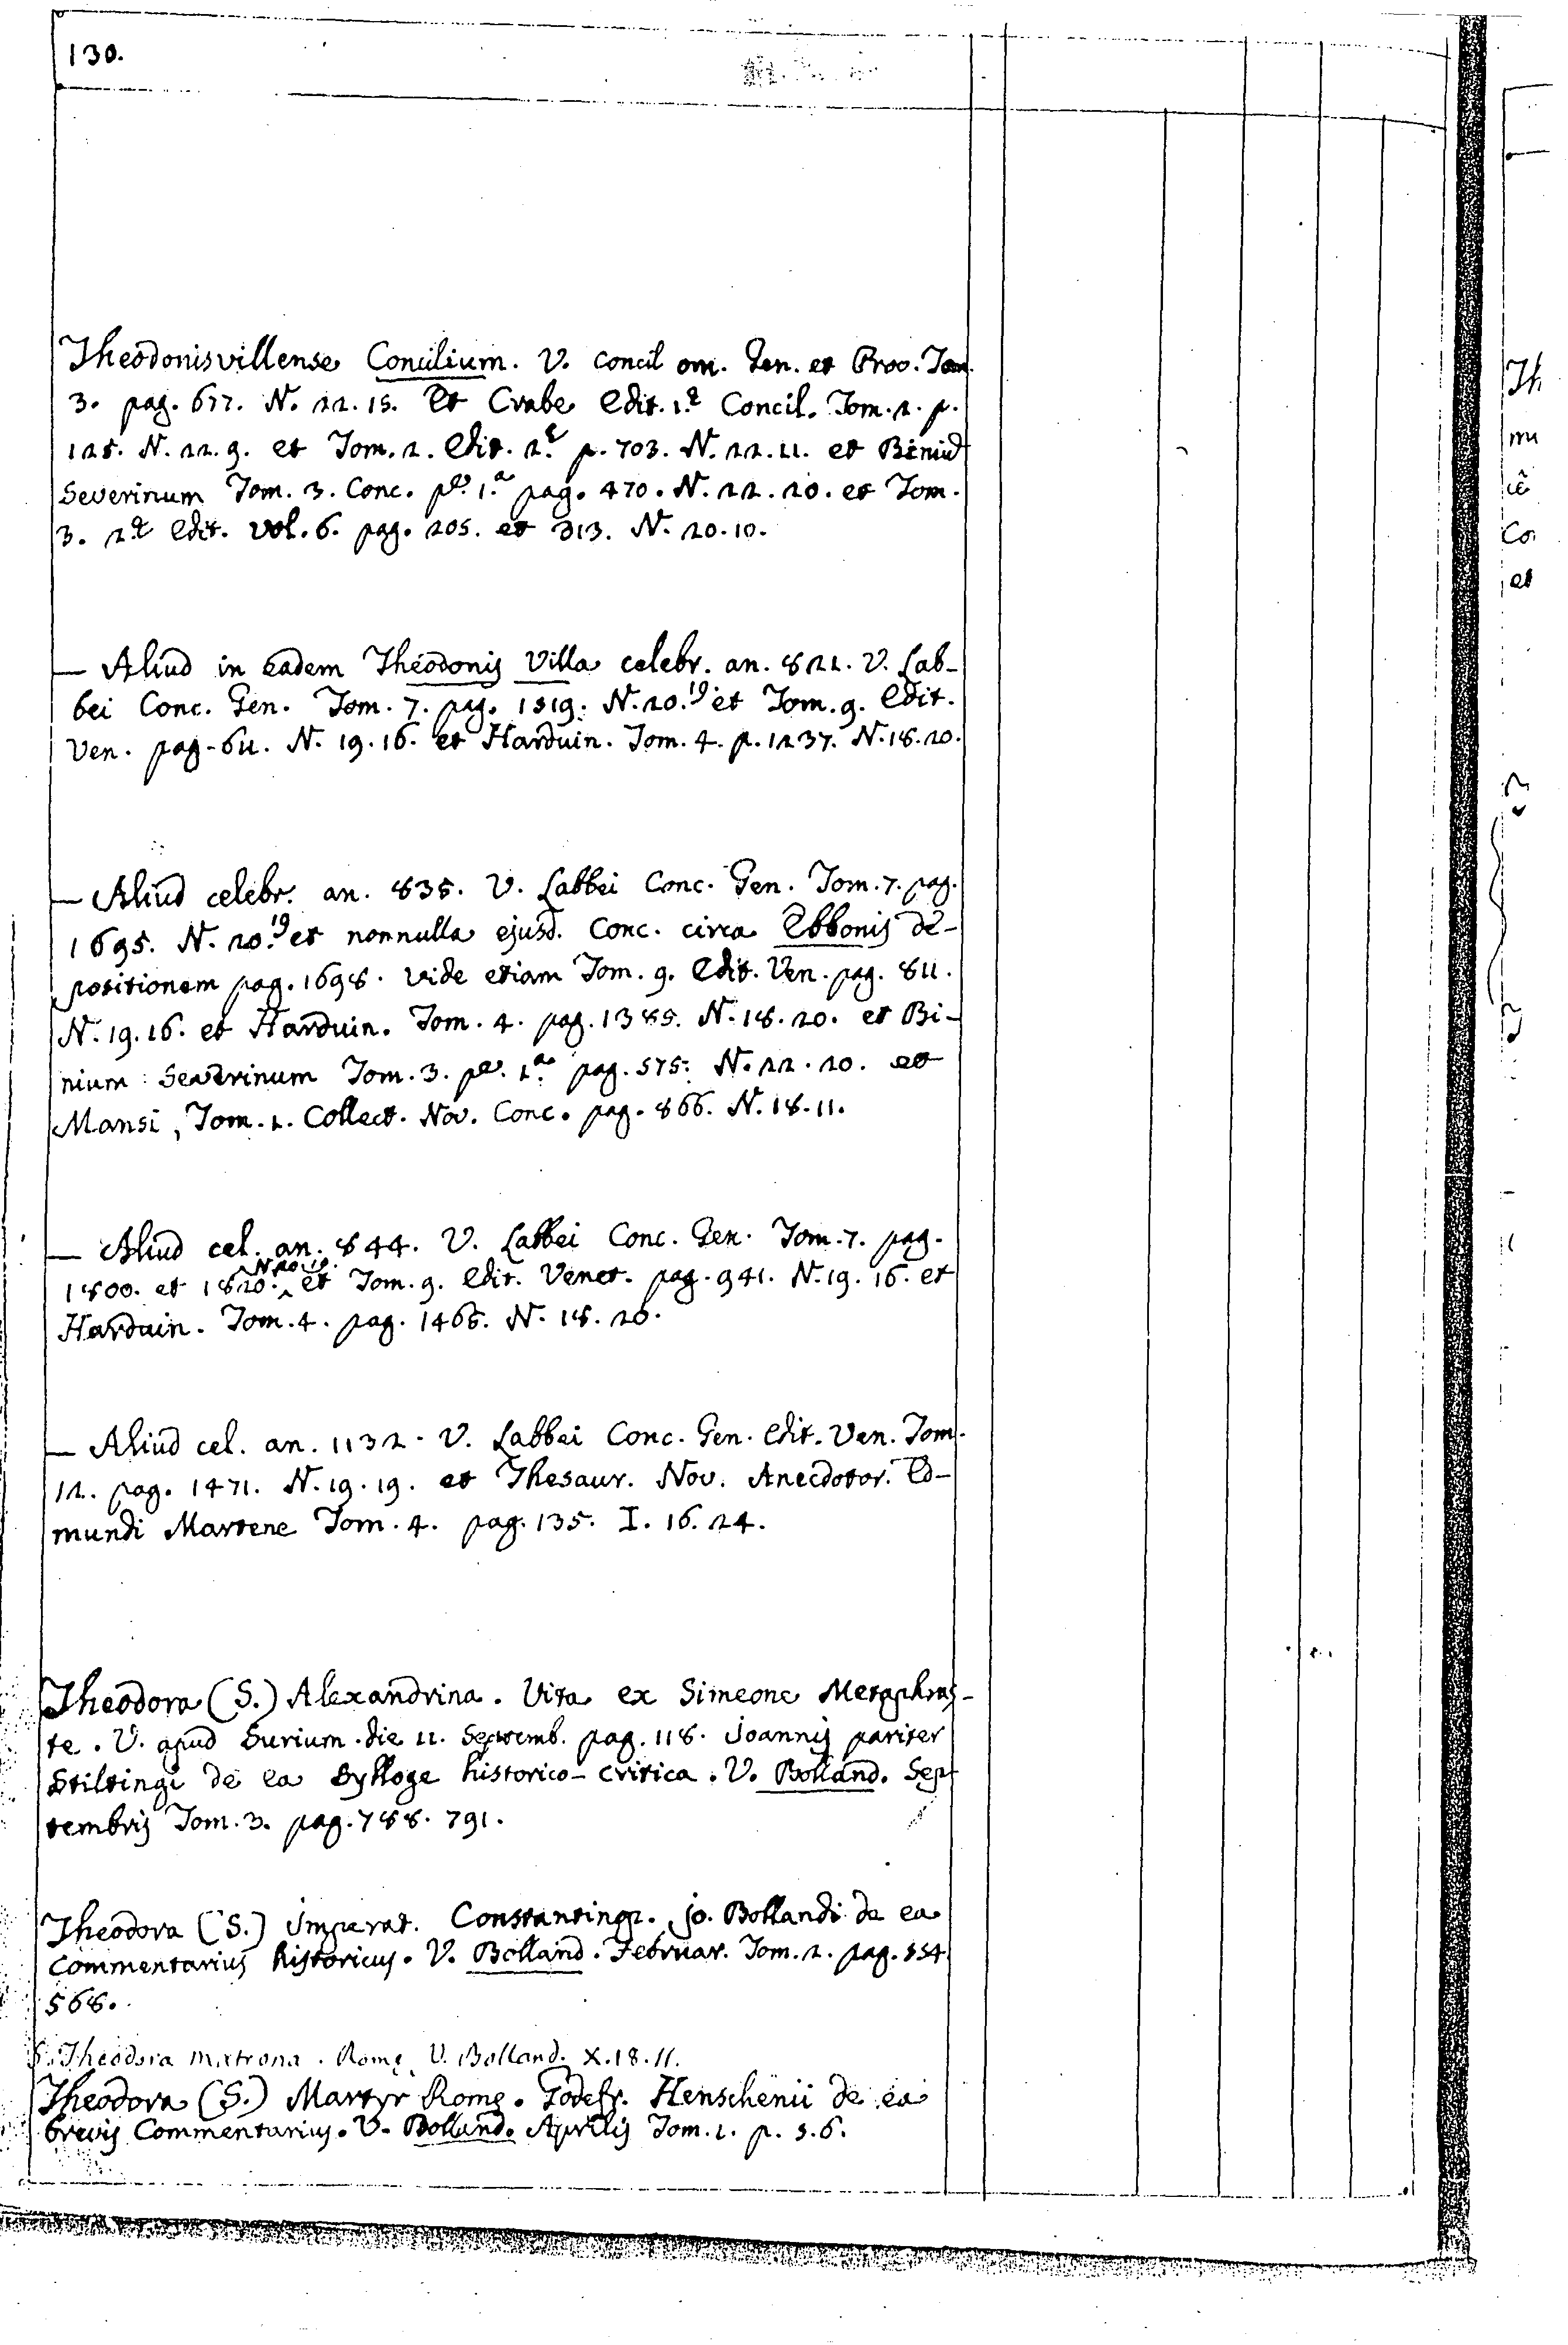 130.
Theodonisvillense Concilium. V. Concil om. Gen. et Prov. Tom.
3. pag. 677. N. 22. 15. Et Crabe Edit. 1.ª Concil. Tom. 2. p.
125. N. 22. 9. et Tom. 2. Edit. 2.ª p. 703. N. 22. 11. et Biniũ
Severinum Tom. 3. Conc. pe. 1.ª pag. 470. N. 22. 20. et Tom.
3. 2ª Edit. Vol. 6. pag. 205. et 313. N. 20. 10.
— Aliud in eadem Theodonis Villa celebr. an. 821. V. Lab-
bei Conc. Gen. Tom. 7. pag. 1519. N. 20. 19 et Tom. 9. Edit.
Ven. pag. 611. N. 19. 16. et Harduin. Tom. 4. p. 1237. N. 18. 20.
— Aliud celebr. an. 835. V. Labbei Conc. Gen. Tom. 7. pag.
1695. N. 20. 19 et nonnulla ejusd. Conc. circa Ebbonis de-
positionem pag. 1698. vide etiam Tom. 9. Edit. Ven. pag. 811.
N. 19. 16. et Harduin. Tom. 4. pag. 1385. N. 18. 20. et Bi-
nium Severinum Tom. 3. pe. 1.ª pag. 575. N. 22. 20. et
Mansi, Tom. 1. Collect. Nov. Conc. pag. 866. N. 18. 11.
— Aliud cel. an. 844. V. Labbei Conc. Gen. Tom. 7. pag.
1800. et 1820. N. 20. 19. et Tom. 9. Edit. Venet. pag. 941. N. 19. 16. et
Harduin. Tom. 4. pag. 1465. N. 18. 20.
— Aliud cel. an. 1132. V. Labbei Conc. Gen. Edit. Ven. Tom.
12. pag. 1471. N. 19. 19. et Thesaur. Nov. Anecdotor. Ed-
mundi Martene Tom. 4. pag. 135. I. 16. 24.
Theodora (S.) Alexandrina. Vita ex Simeone Metaphras-
te. V. apud Surium die 11. Septemb. pag. 118. Joannis pariter
Stiltingi de ea Sylloge historico-critica. V. Bolland. Sep-
tembris Tom. 3. pag. 788. 791.
Theodora (S.) Imperat. Constantinop. Jo. Bollandi de ea
Commentarius historicus. V. Bolland. Februar. Tom. 2. pag. 554
568.
S. Theodora matrona. Romę V. Bolland. X. 18. 11.
Theodora (S.) Martyr Romę. Godefr. Henschenii de ea
brevis Commentarius. V. Bolland. Aprilis Tom. 1. p. 5. 6.